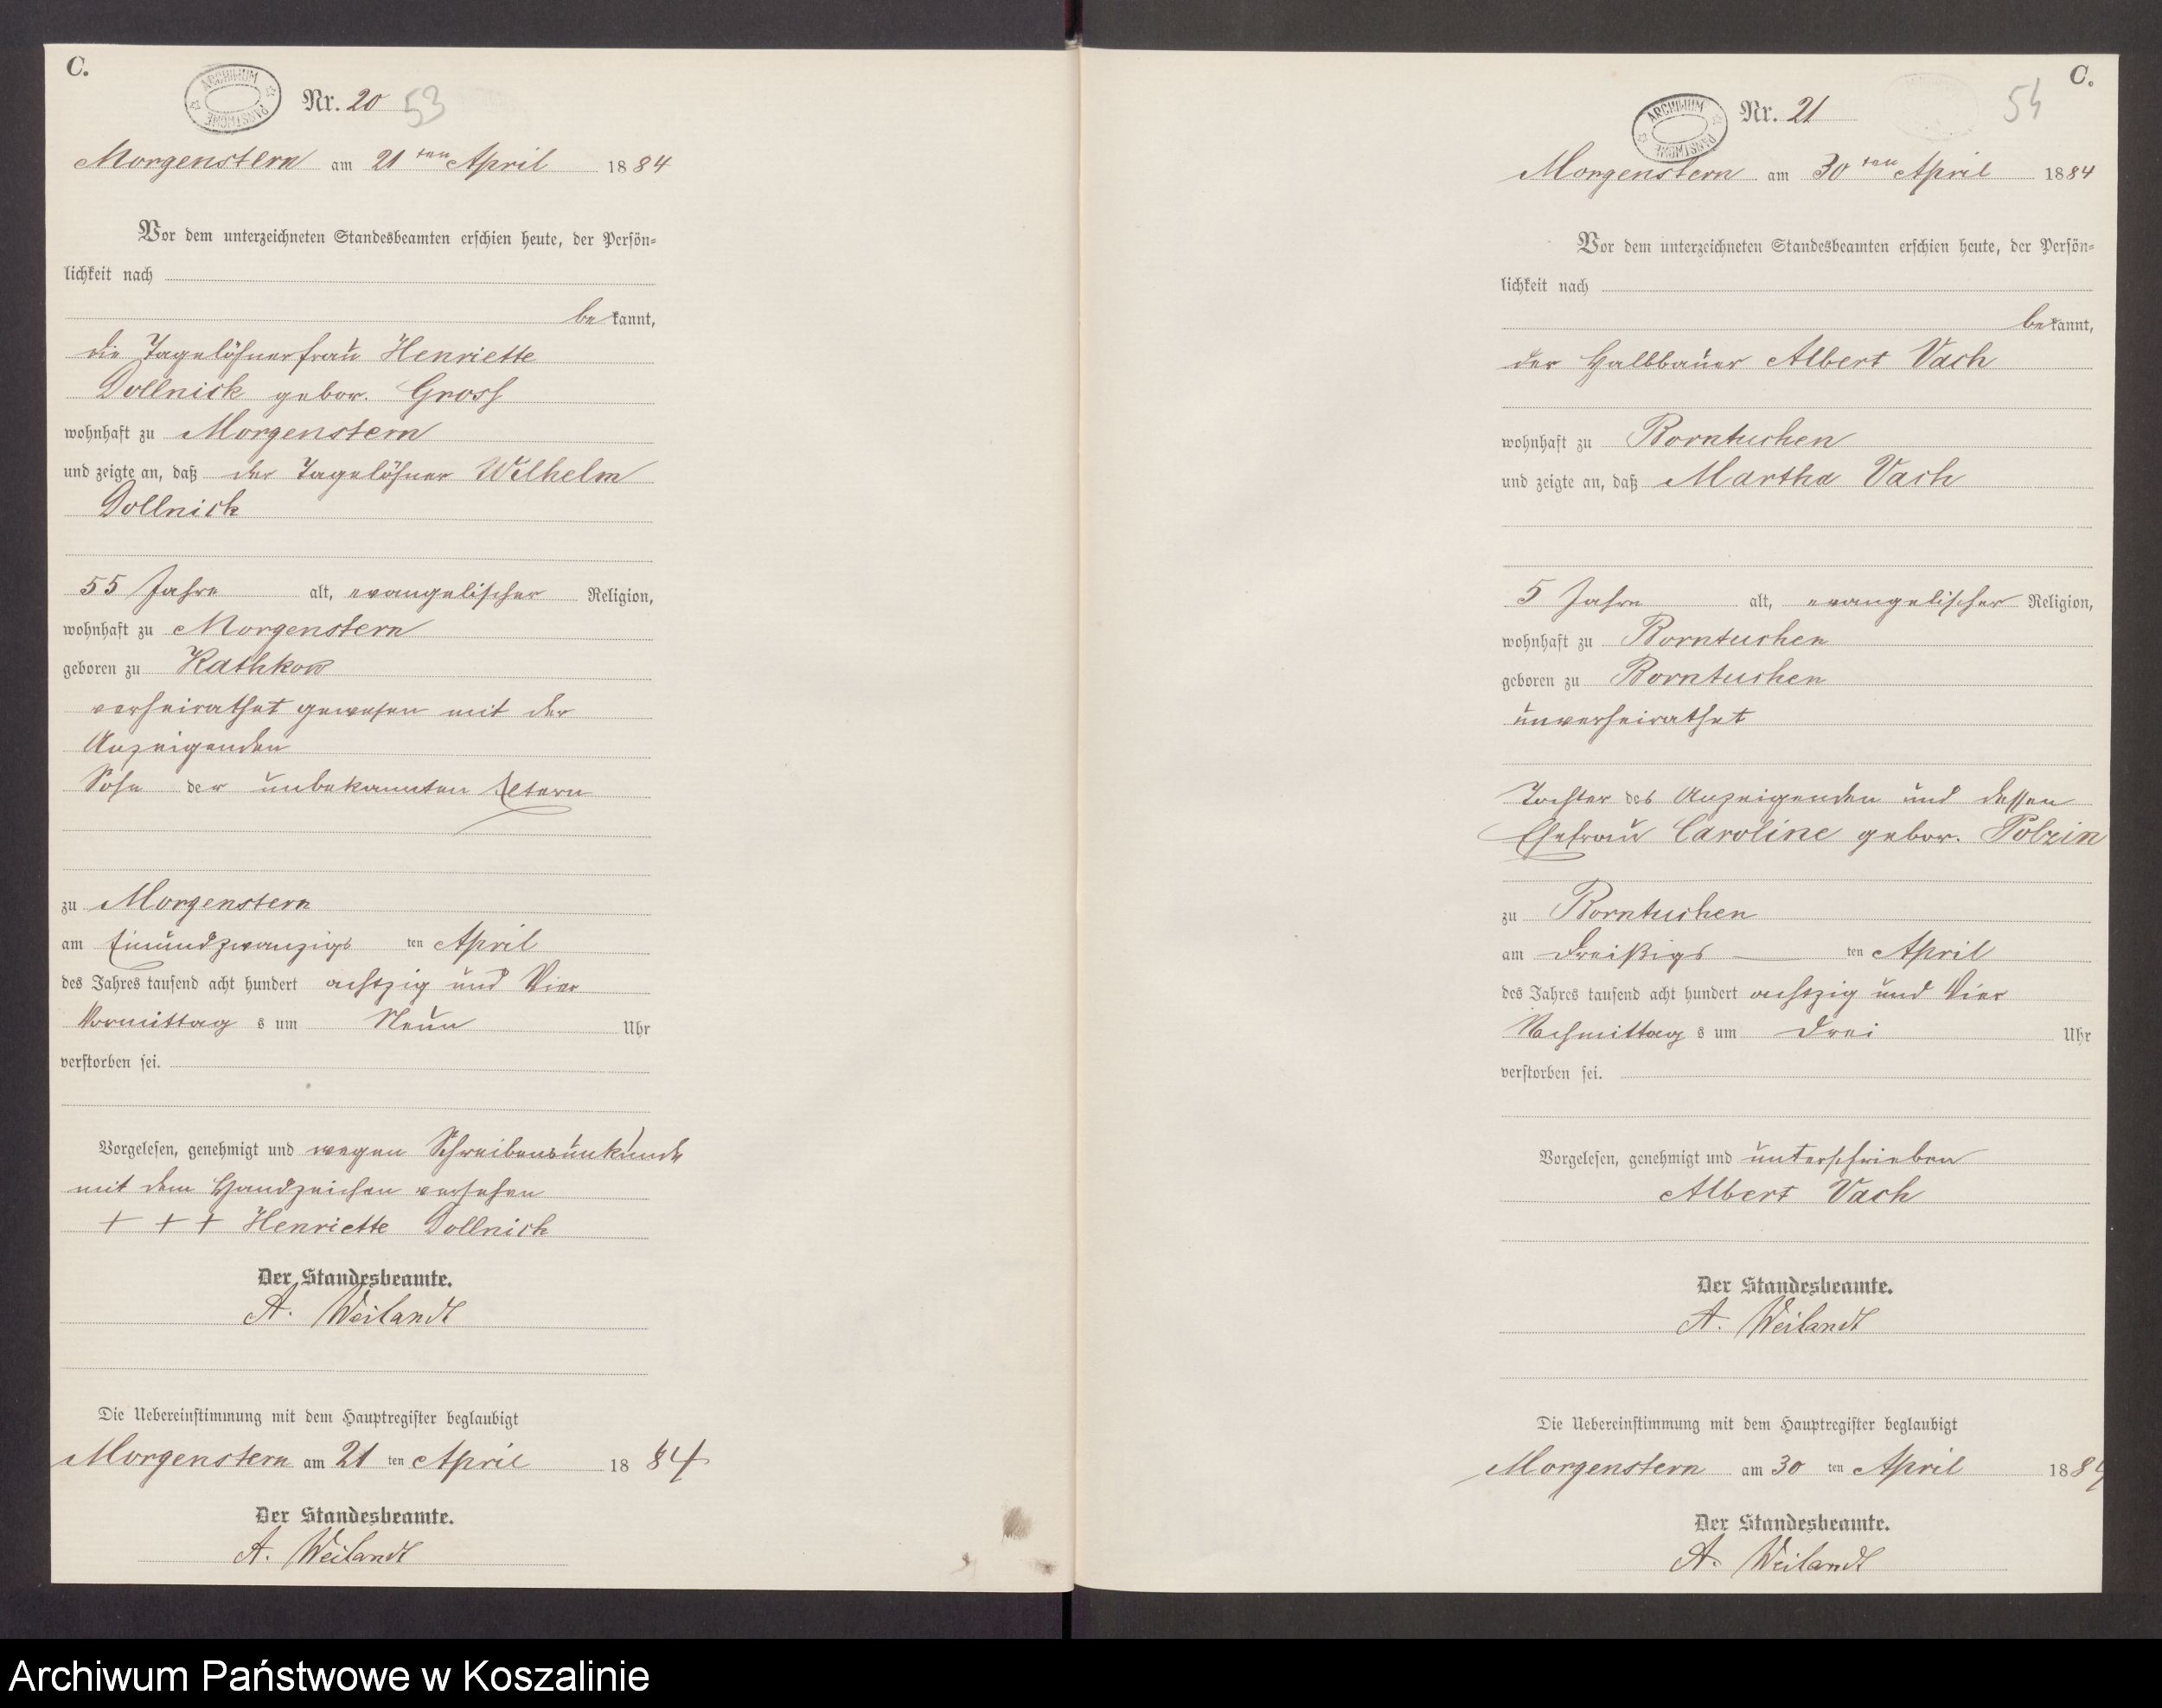 C.
ARCHIWUM PAŃSTWOWE
Nr. 20 53
Morgenstern am 21 ten April 1884
Vor dem unterzeichneten Standesbeamten erschien heute, der Persön=
lichkeit nach
bekannt,
die Tagelöhnerfrau Henriette
Dollnick gebor. Gross
wohnhaft zu Morgenstern
und zeigte an, daß der Tagelöhner Wilhelm
Dollnick
55 Jahre alt, evangelischer Religion,
wohnhaft zu Morgenstern
geboren zu Kathkow
verheirathet gewesen mit der
Anzeigenden
Sohn der unbekannten Eltern
zu Morgenstern
am Einundzwanzigs ten April
des Jahres tausend acht hundert achtzig und Vier
Vormittag s um Neun Uhr
verstorben sei.
Vorgelesen, genehmigt und wegen Schreibensunkunde
mit dem Handzeichen versehen
+ + + Henriette Dollnick
Der Standesbeamte.
A. Weilandt
Die Uebereinstimmung mit dem Hauptregister beglaubigt
Morgenstern am 21 ten April 1884
Der Standesbeamte.
A. Weilandt
C.
54
ARCHIWUM PAŃSTWOWE
Nr. 21
Morgenstern am 30 ten April 1884
Vor dem unterzeichneten Standesbeamten erschien heute, der Persön=
lichkeit nach
bekannt,
der Halbbauer Albert Vach
wohnhaft zu Borntuchen
und zeigte an, daß Martha Vach
5 Jahre alt, evangelischer Religion,
wohnhaft zu Borntuchen
geboren zu Borntuchen
unverheirathet
Tochter des Anzeigenden und dessen
Ehefrau Caroline gebor. Polzin
zu Borntuchen
am Dreißigs ten April
des Jahres tausend acht hundert achtzig und Vier
Nachmittag s um Drei Uhr
verstorben sei.
Vorgelesen, genehmigt und unterschrieben
Albert Vach
Der Standesbeamte.
A. Weilandt
Die Uebereinstimmung mit dem Hauptregister beglaubigt
Morgenstern am 30 ten April 1884
Der Standesbeamte.
A. Weilandt
Archiwum Państwowe w Koszalinie